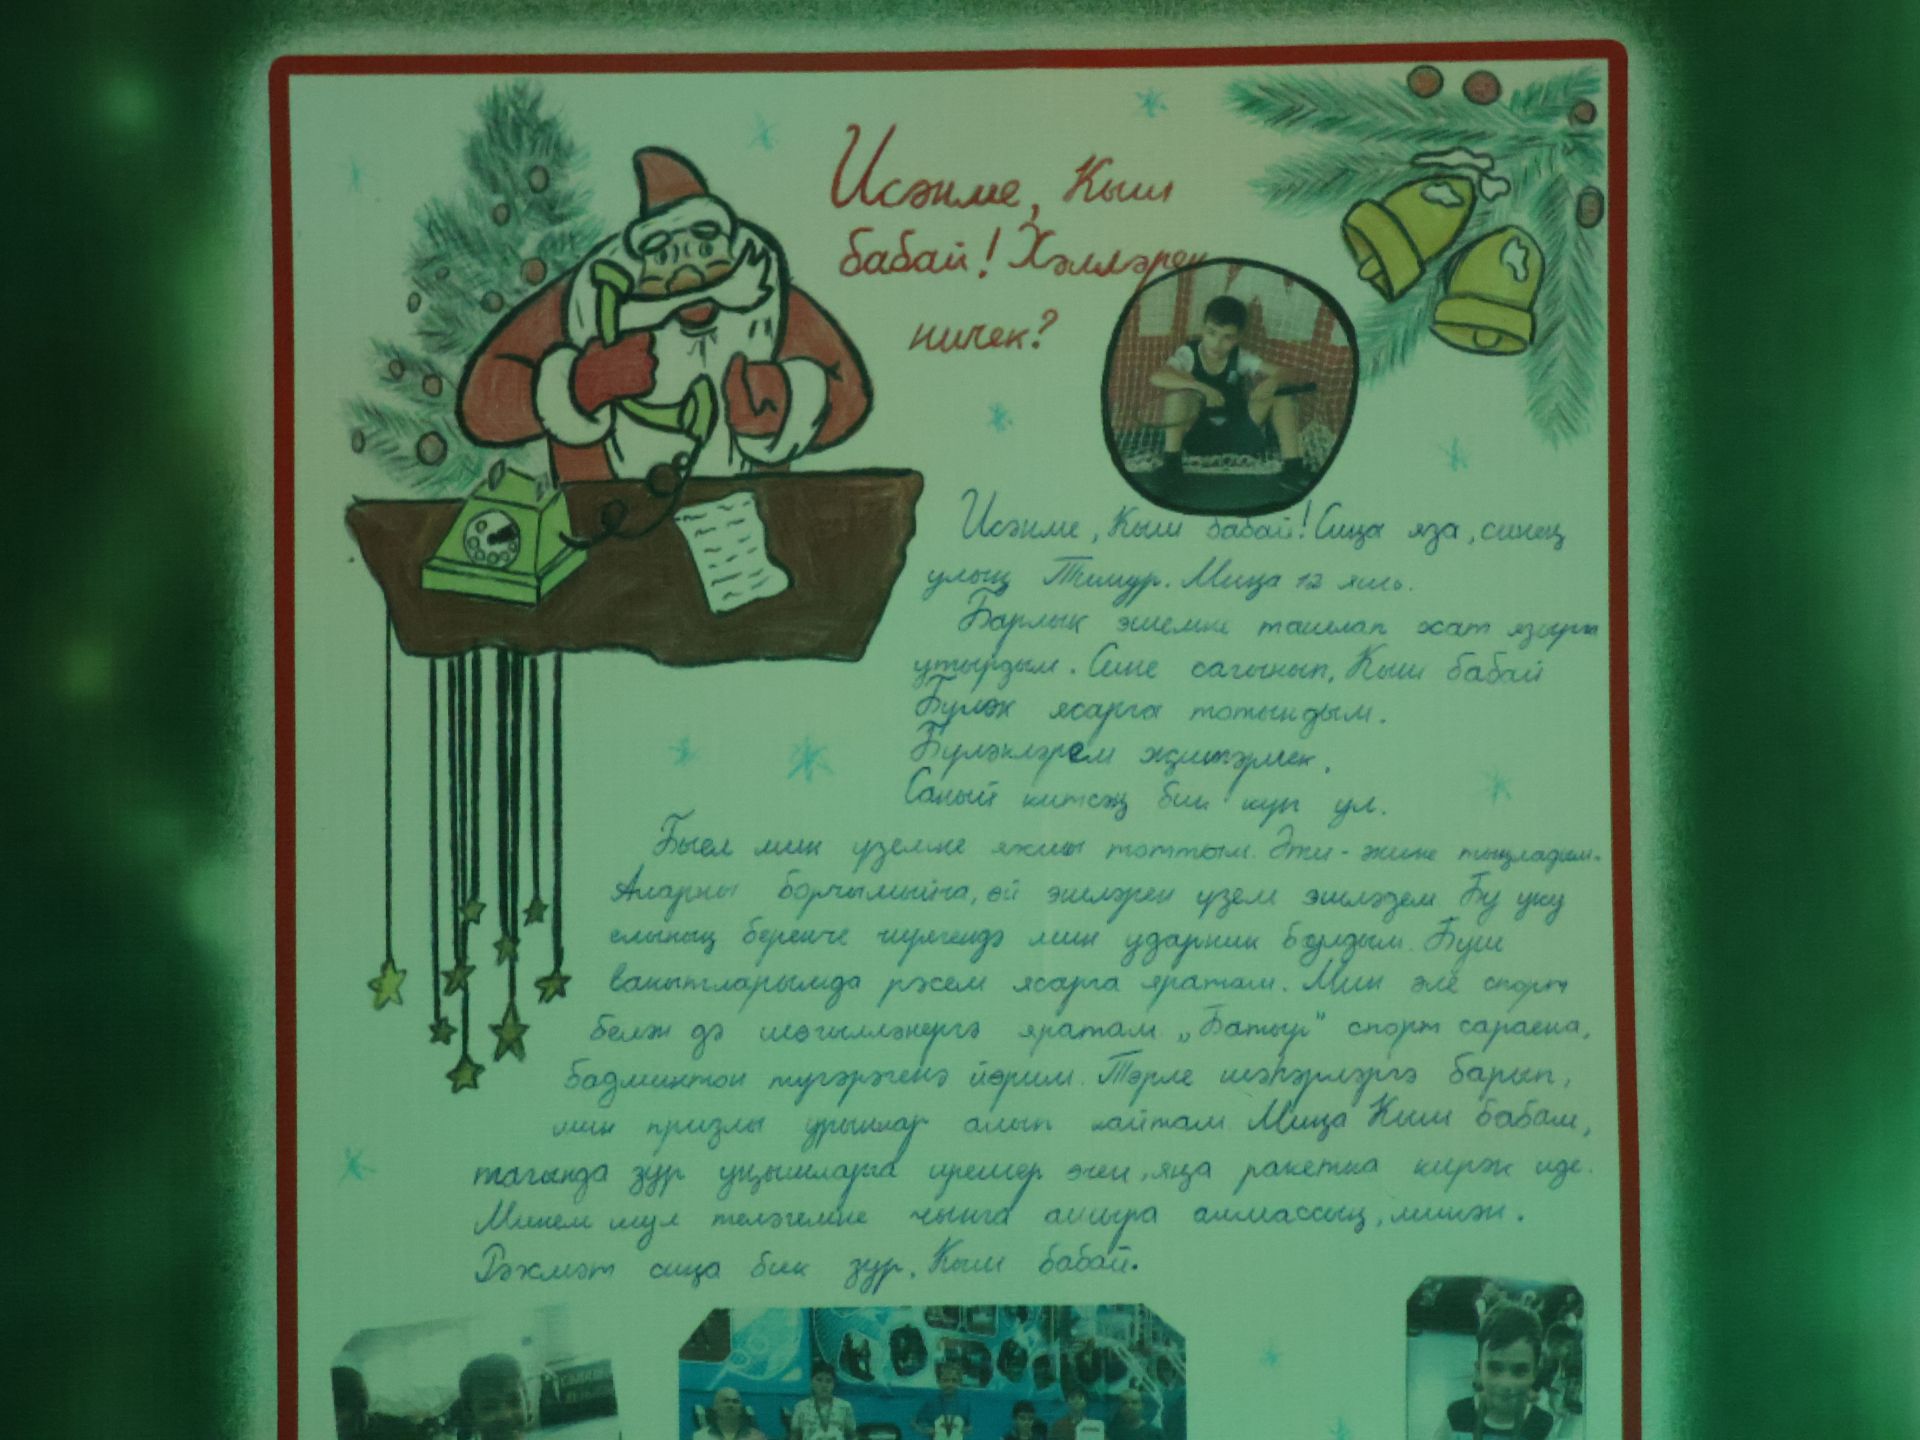 Исәнме, Кыш
бабай! Хәлләрен
ничек?
Исәнме, Кыш бабай! Сиңа яза, синең
улың Тимур. Миңа 12 яшь.
Барлык эшемне ташлап хат язырга
утырдым. Сине сагынып, Кыш бабай
Бүләк ясарга тотындым.
Бүләкләрем җитәрлек,
Саный китсәң бик күп ул.
Быел мин үземне яхшы тоттым. Әти-әнине тыңладым.
Аларны борчымыйча, өй эшләрен үзем эшләдем Бу уку
елының беренче чирегендә мин ударник булдым. Буш
вакытларымда рәсем ясарга яратам. Мин әле спорт
белән дә шөгыльләнергә яратам. „Батыр" спорт сараена,
бадминтон түгәрәгенә йөрим. Төрле шәһәрләргә барып,
мин призлы урыннар алып кайтам. Миңа Кыш бабам,
тагында зур уңышларга ирешер өчен, яңа ракетка кирәк иде.
Минем шул теләгемне чынга ашыра алмассың, микән.
Рәхмәт сиңа бик зур, Кыш бабай.